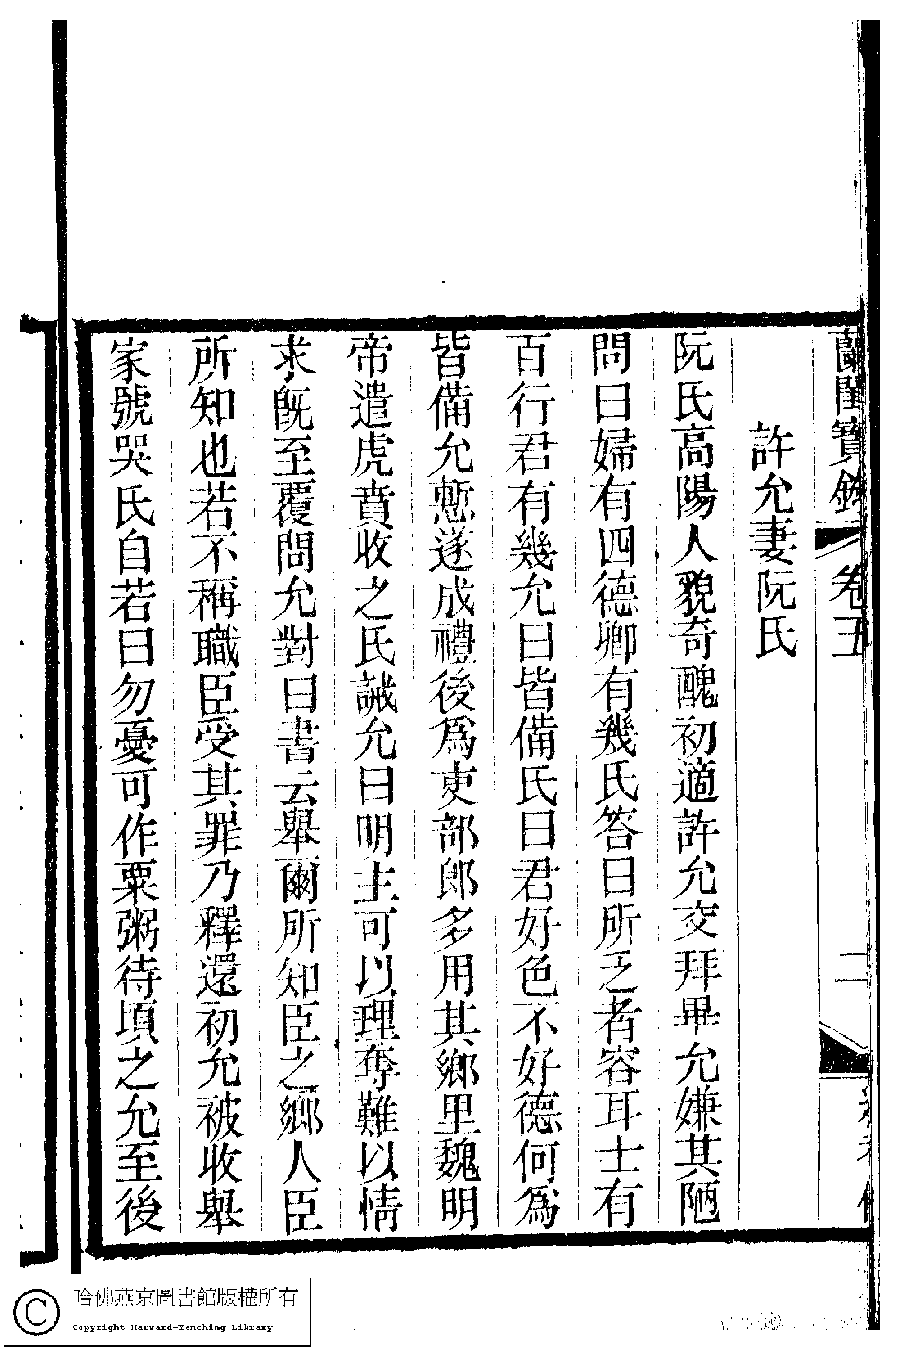 蘭閨寶錄 卷五 二
許允妻阮氏
阮氏高陽人貌奇醜初適許允交拜畢允嫌其陋
問曰婦有四德卿有幾氏答曰所乏者容耳士有
百行君有幾允曰皆備氏曰君好色不好德何為
皆備允慙遂成禮後為吏部郎多用其鄉里魏明
帝遣虎賁收之氏誡允曰明主可以理奪難以情
求既至覆問允對曰書云舉爾所知臣之鄉人臣
所知也若不稱職臣受其罪乃釋還初允被收舉
家號哭氏自若曰勿憂可作粟粥待頃之允至後
哈佛燕京圖書館版權所有
Copyright Harvard-Yenching Library